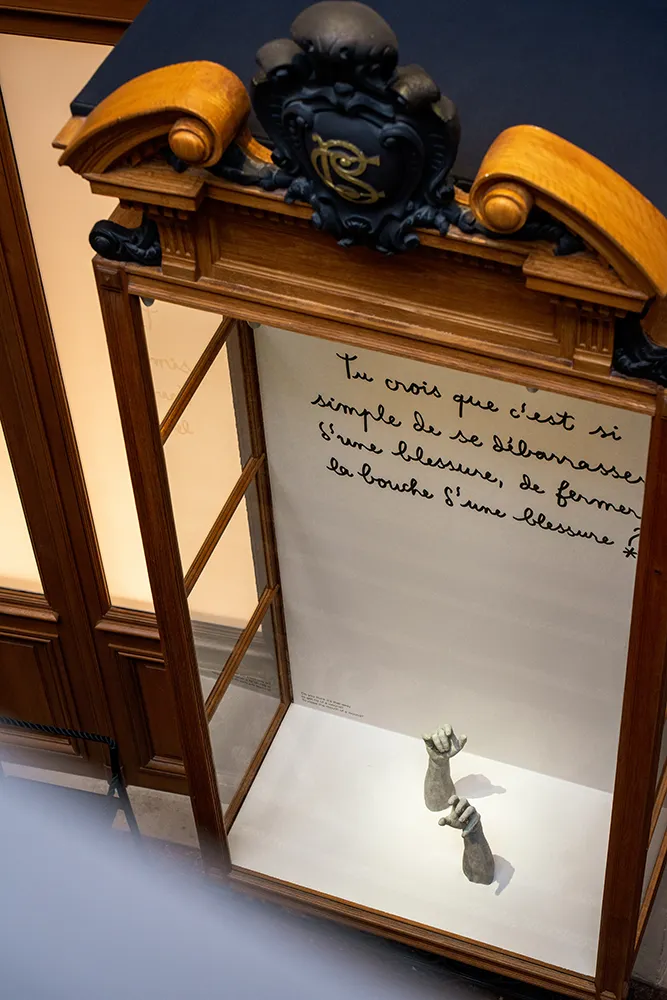 Tu crois que c'est si
simple de se débarrasser
d'une blessure, de fermer
la bouche d'une blessure ?
*